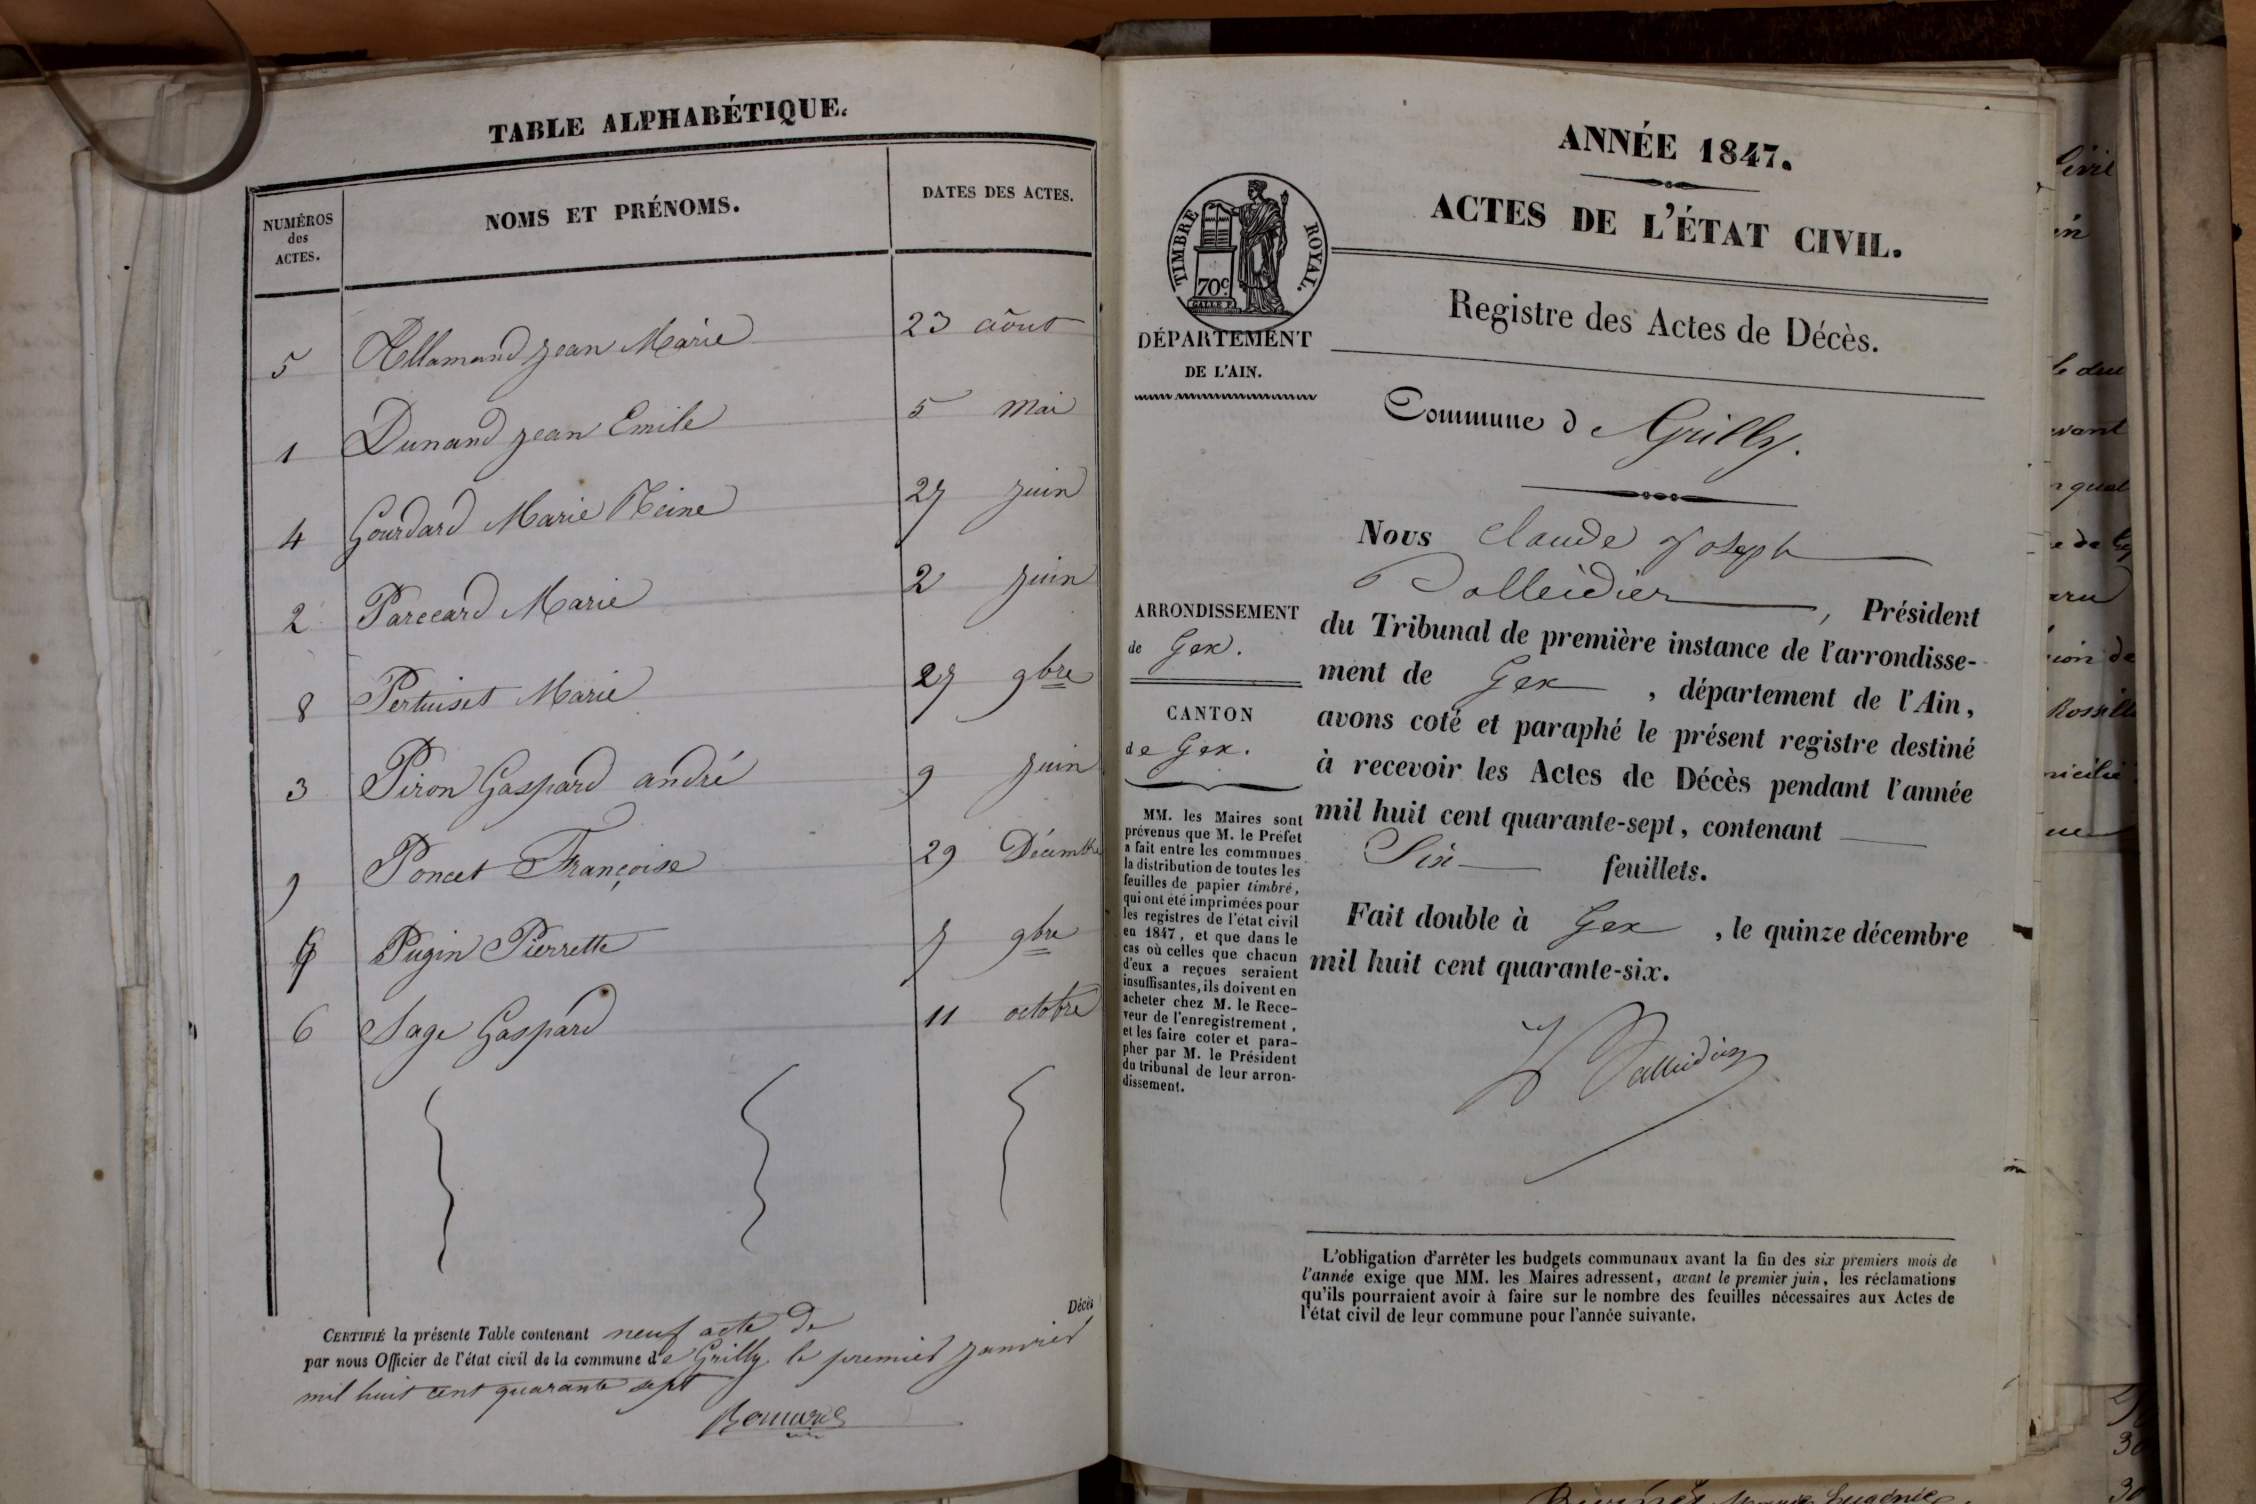 TABLE ALPHABÉTIQUE.
NUMÉROS
des
ACTES.
NOMS ET PRÉNOMS.
DATES DES ACTES.
5 Allamand Jean Marie 23 août
1 Dunand Jean Emile 5 Mai
4 Gourdard Marie Reine 27 Juin
2 Parccard Marie 2 Juin
8 Pertuiset Marie 27 9bre
3 Piron Gaspard andré 9 Juin
9 Poncet Françoise 29 Décembre
7 Pugin Pierrette 7 9bre
6 Sage Gaspard 11 octobre
Décès
CERTIFIÉ la présente Table contenant neuf acte de
par nous Officier de l'état civil de la commune de Grilly le premier Janvier
mil huit cent quarante sept
ANNÉE 1847.
ACTES DE L'ÉTAT CIVIL.
TIMBRE ROYAL.
70c
DÉPARTEMENT
DE L'AIN.
Registre des Actes de Décès.
Commune d Grilly.
Nous Claude Joseph
Balleidier, Président
du Tribunal de première instance de l'arrondisse-
ment de Gex, département de l'Ain,
avons coté et paraphé le présent registre destiné
à recevoir les Actes de Décès pendant l'année
mil huit cent quarante-sept, contenant
Six feuillets.
Fait double à Gex, le quinze décembre
mil huit cent quarante-six.
Balleidier
ARRONDISSEMENT
de Gex.
CANTON
de Gex.
MM. les Maires sont
prévenus que M. le Préfet
a fait entre les communes
la distribution de toutes les
feuilles de papier timbré,
qui ont été imprimées pour
les registres de l'état civil
en 1847, et que dans le
cas où celles que chacun
d'eux a reçues seraient
insuffisantes, ils doivent en
acheter chez M. le Rece-
veur de l'enregistrement,
et les faire coter et para-
pher par M. le Président
du tribunal de leur arron-
dissement.
L'obligation d'arrêter les budgets communaux avant la fin des six premiers mois de
l'année exige que MM. les Maires adressent, avant le premier juin, les réclamations
qu'ils pourraient avoir à faire sur le nombre des feuilles nécessaires aux Actes de
l'état civil de leur commune pour l'année suivante.